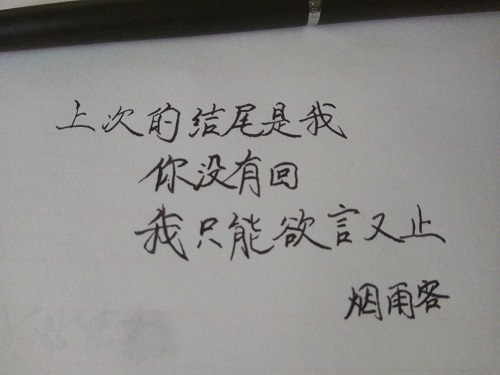 上次的结尾是我
你没有回
我只能欲言又止
烟雨客